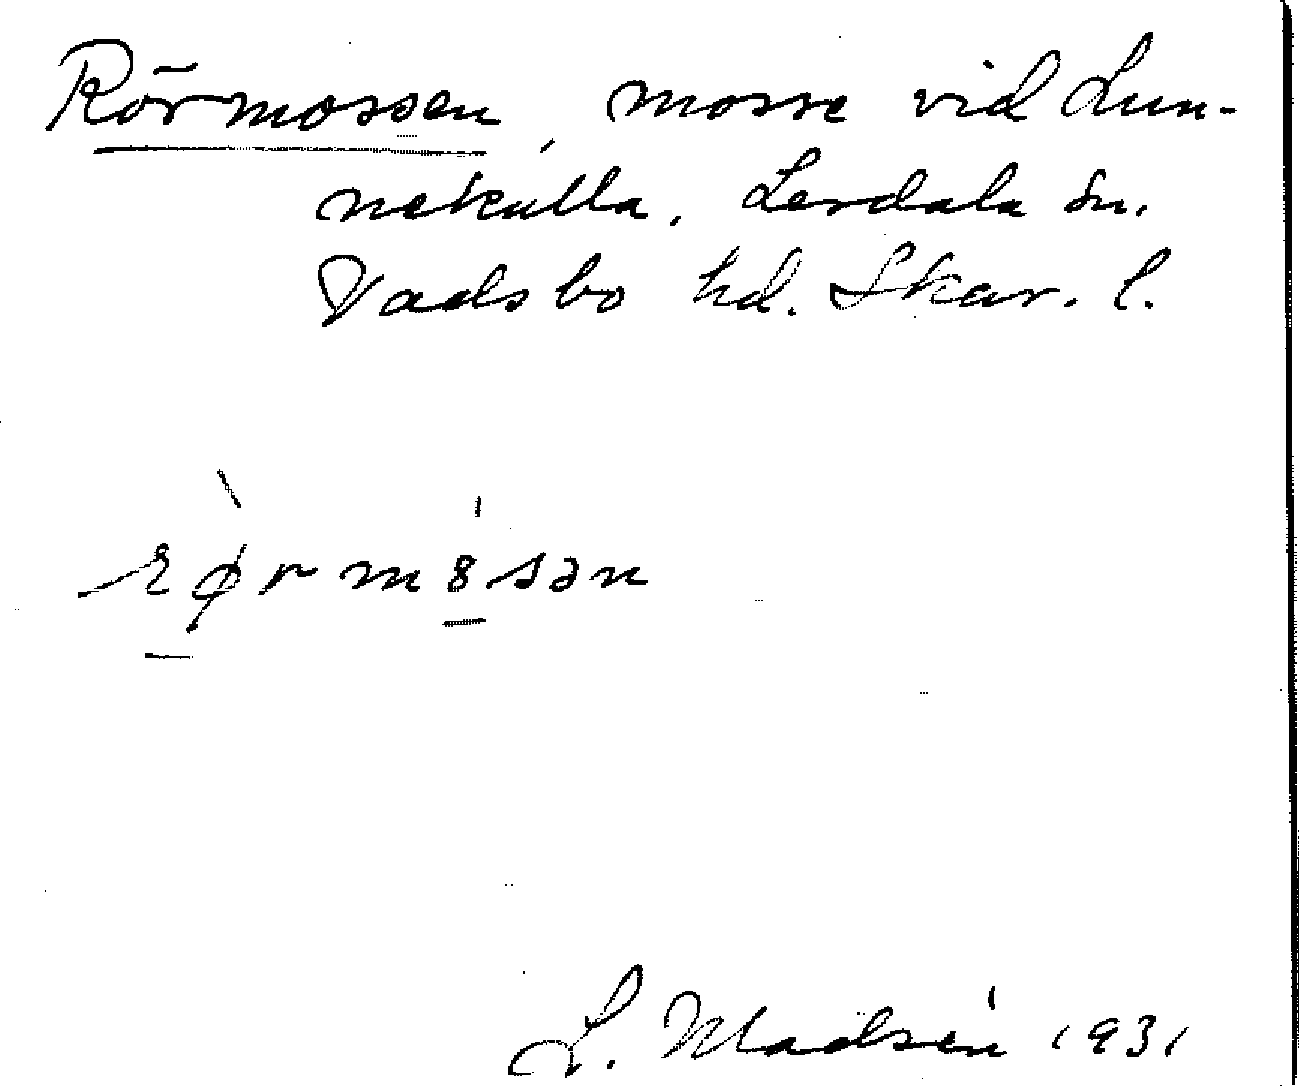 Rörmossen, mosse vid Lun-
nekulla, Lerdala sn.
Vadsbo hd. Skar. l.
L. Madsén 1931